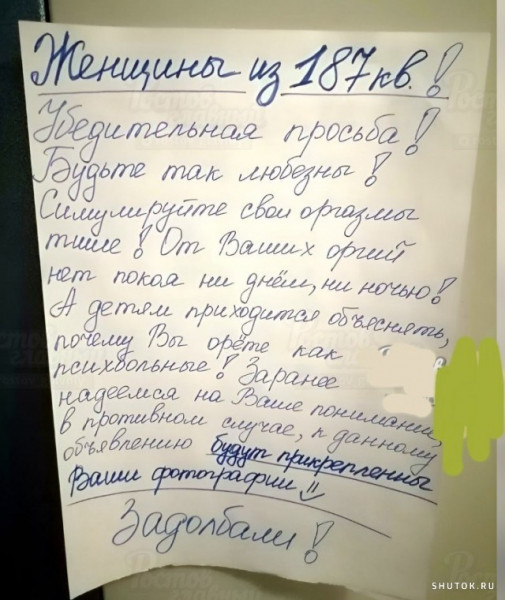 Женщины из 187 кв.!
Убедительная просьба!
Будьте так любезны!
Симулируйте свои оргазмы
тише! От Ваших оргий
нет покоя ни днём, ни ночью!
А детям приходится объеснять,
почему Вы орёте как
психбольные! Заранее
надеемся на Ваше понимание,
в противном случае, к данному
объявлению будут прикрепленны
Ваши фотографии
Задолбали!
SHUTOK.RU